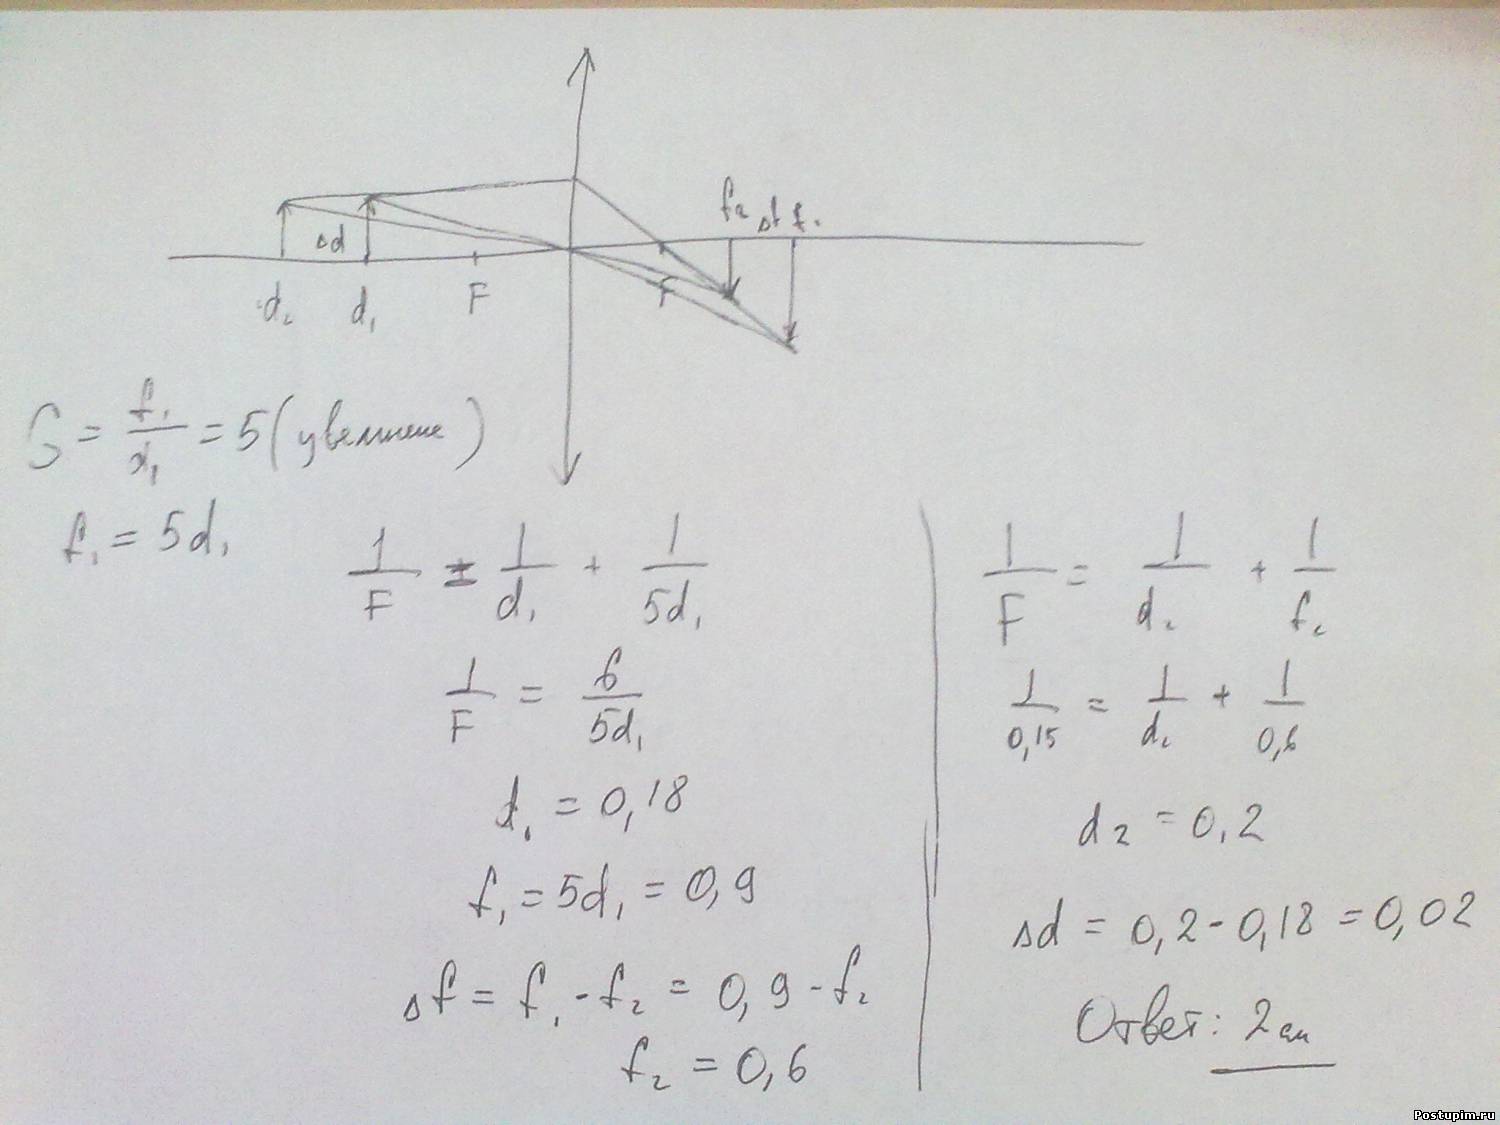 f₂ Δf f₁
Δd
d₂ d₁ F F
Г = f₁/d₁ = 5 (увеличение)
f₁ = 5d₁
1/F = 1/d₁ + 1/5d₁
1/F = 6/5d₁
d₁ = 0,18
f₁ = 5d₁ = 0,9
Δf = f₁ - f₂ = 0,9 - f₂
f₂ = 0,6
1/F = 1/d₂ + 1/f₂
1/0,15 = 1/d₂ + 1/0,6
d₂ = 0,2
Δd = 0,2 - 0,18 = 0,02
Ответ: 2 см
Postupim.ru